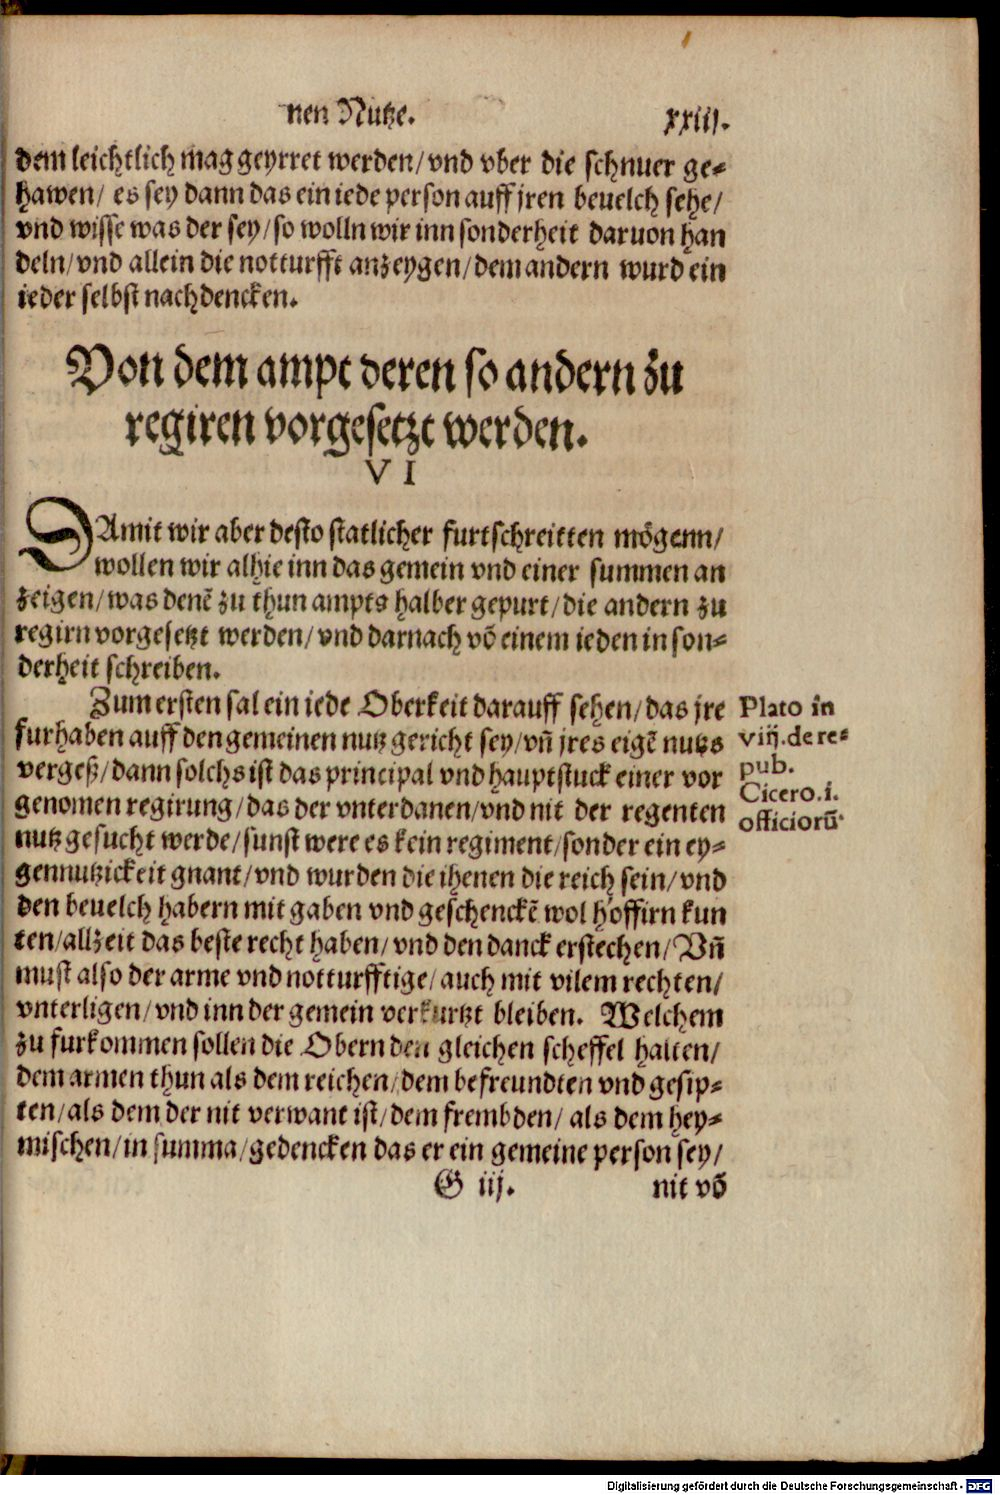 nen Nutze. xxiij.
dem leichtlich mag geyrret werden/vnd vber die schnuer ge-
hawen/ es sey dann das ein iede person auff jren beuelch sehe/
vnd wisse was der sey/so wolln wir inn sonderheit daruon han
deln/vnd allein die notturfft anzeygen/dem andern wurd ein
ieder selbst nachdencken.
Von dem ampt deren so andern zu
regiren vorgesetzt werden.
V I
DAmit wir aber desto statlicher furtschreitten mögenn/
wollen wir alhie inn das gemein vnd einer summen an
zeigen/was denẽ zu thun ampts halber gepurt/die andern zu
regirn vorgesetzt werden/vnd darnach võ einem ieden in son-
derheit schreiben.
Zum ersten sal ein iede Oberkeit darauff sehen/das jre
furhaben auff den gemeinen nutz gericht sey/vñ jres eigẽ nutzs
vergeß/dann solchs ist das principal vnd hauptstuck einer vor
genomen regirung/das der vnterdanen/vnd nit der regenten
nutz gesucht werde/sunst were es kein regiment/sonder ein ey-
gennutzickeit gnant/vnd wurden die ihenen die reich sein/vnd
den beuelch habern mit gaben vnd geschenckẽ wol hoffirn kun
ten/allzeit das beste recht haben/vnd den danck erstechen/Vñ
must also der arme vnd notturfftige/auch mit vilem rechten/
vnterligen/vnd inn der gemein verkurtzt bleiben. Welchem
zu furkommen sollen die Obern den gleichen scheffel halten/
dem armen thun als dem reichen/dem befreundten vnd gesip-
ten/als dem der nit verwant ist/dem frembden/ als dem hey-
mischen/in summa/gedencken das er ein gemeine person sey/
G iij. nit võ
Plato in
viij. de re-
pub.
Cicero.i.
officiorũ.
Digitalisierung gefördert durch die Deutsche Forschungsgemeinschaft - DFG